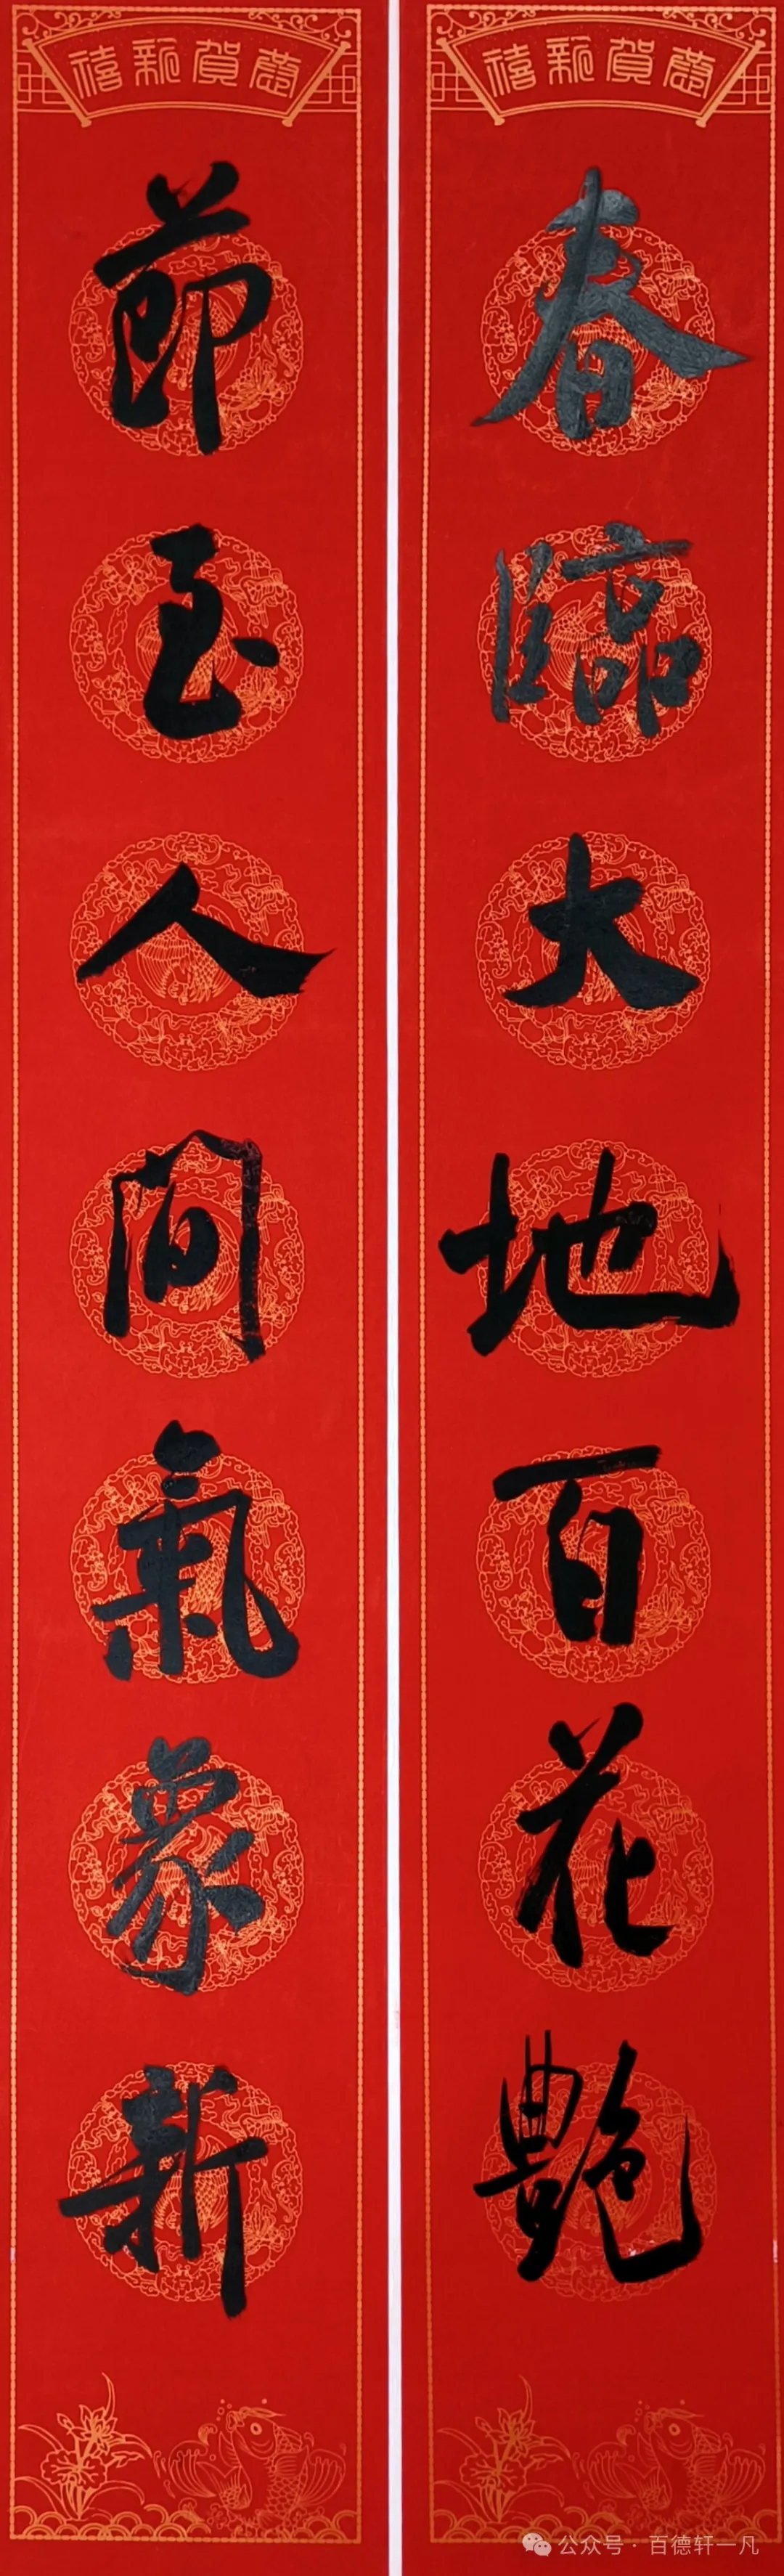 恭賀新禧
春臨大地百花艷
恭賀新禧
節至人間氣象新
公众号·百德轩一凡